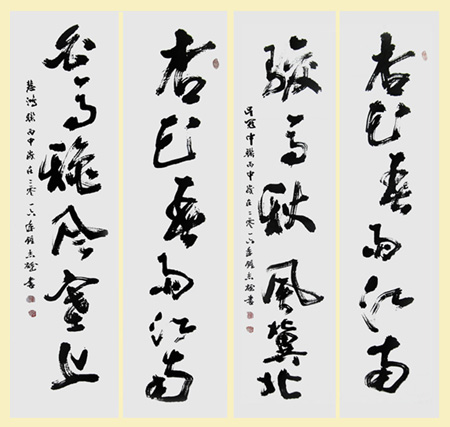 杏花春雨江南
骏马秋风冀北
冠中联丙申岁在二零一六年 书
杏花春雨江南
白马秋风塞上
悲鸿联丙申岁在二零一六年 书